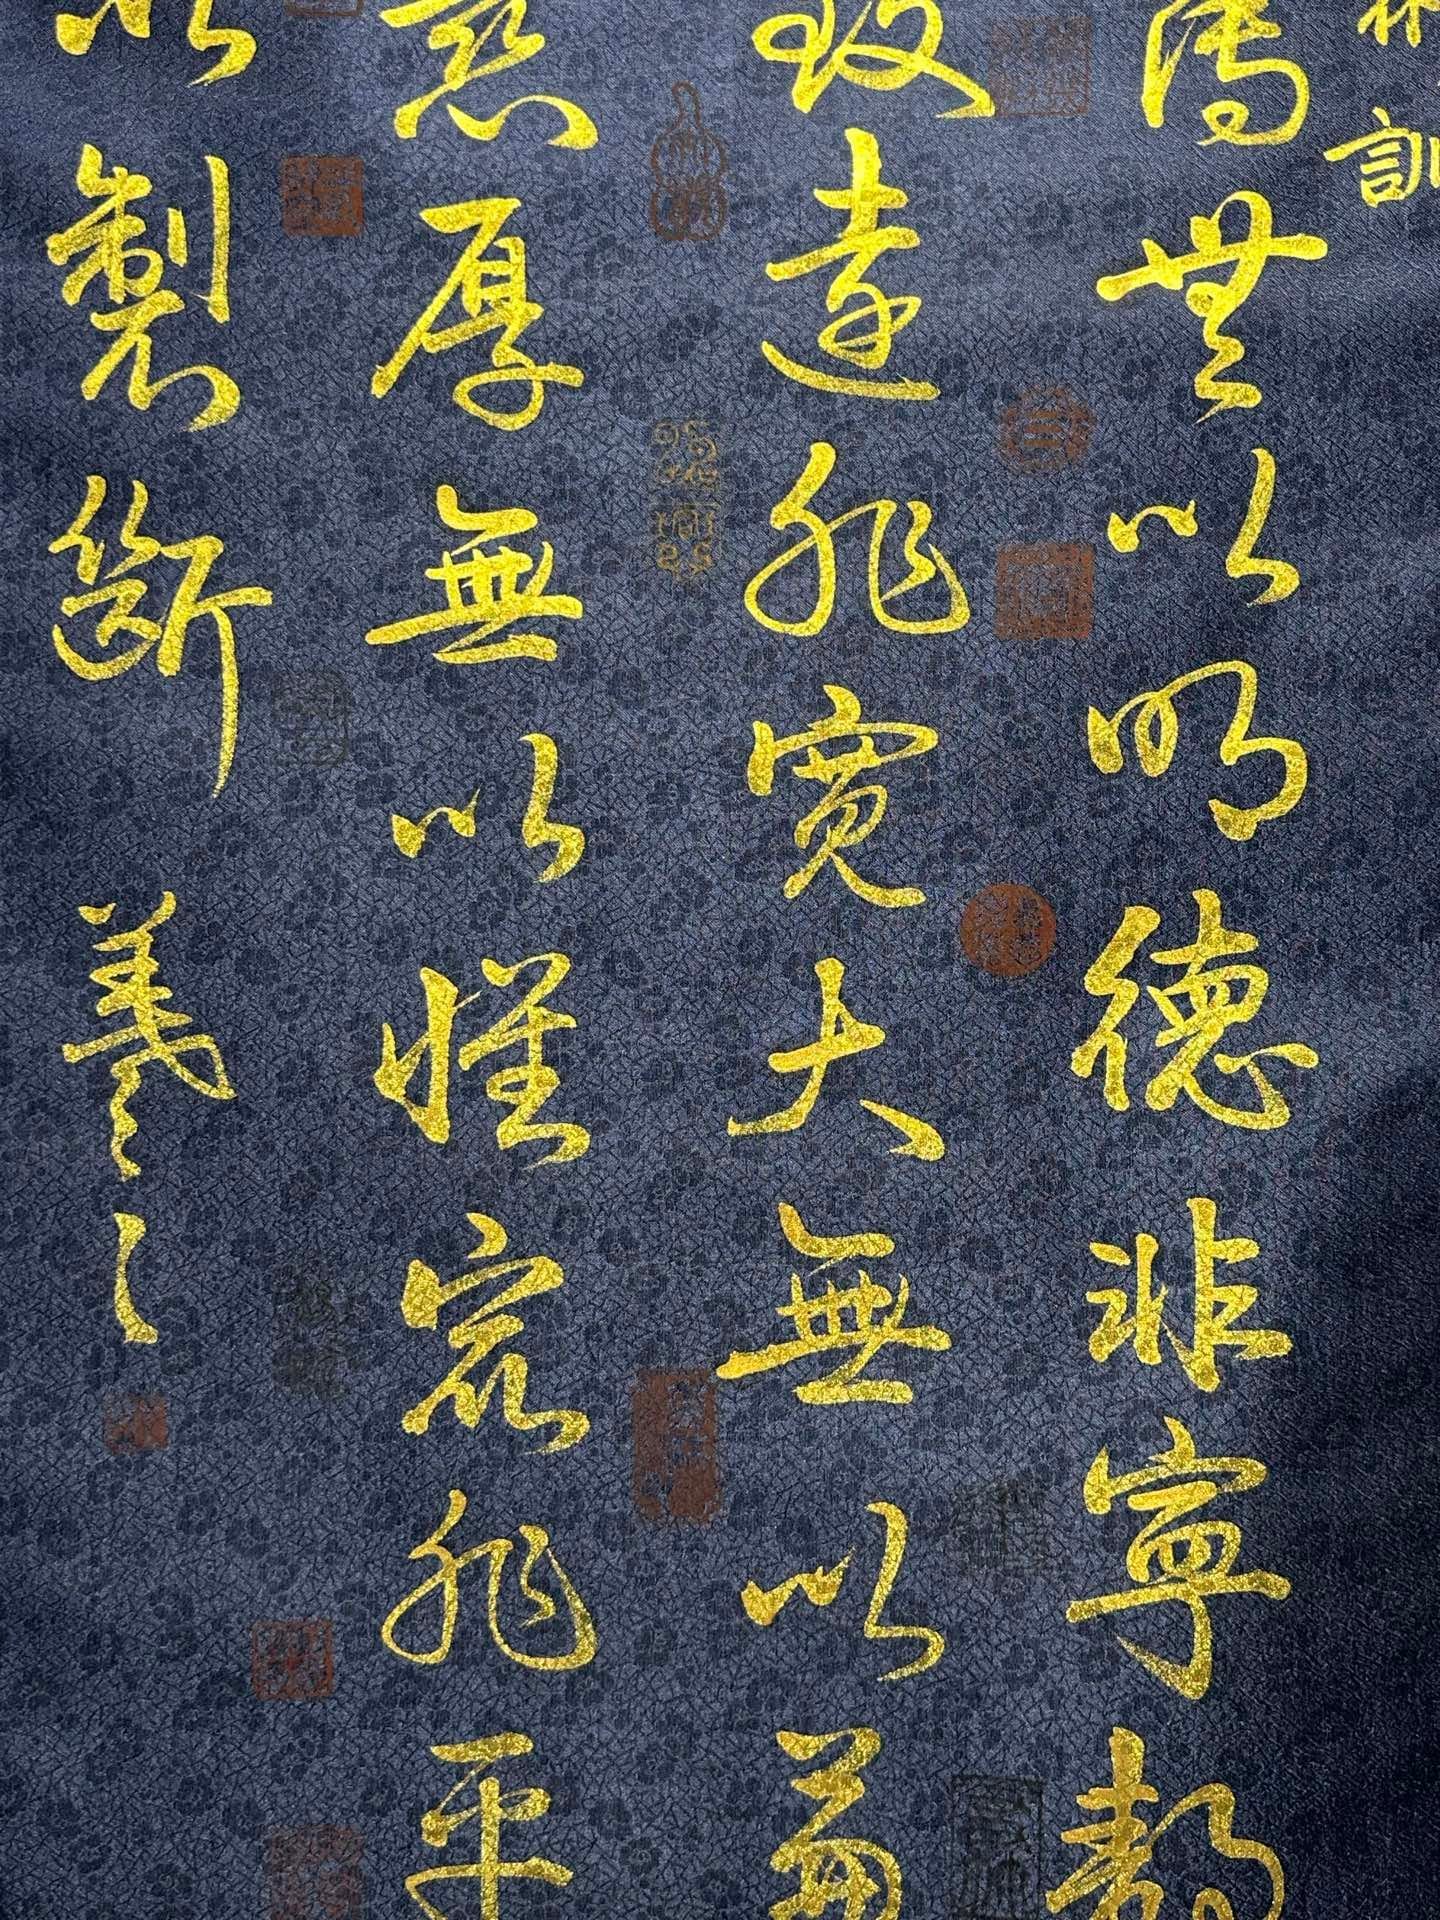 訓
薄無以明德非寧靜
致遠非寬大無以兼
慈厚無以懷衆非平
以製斷 羲之